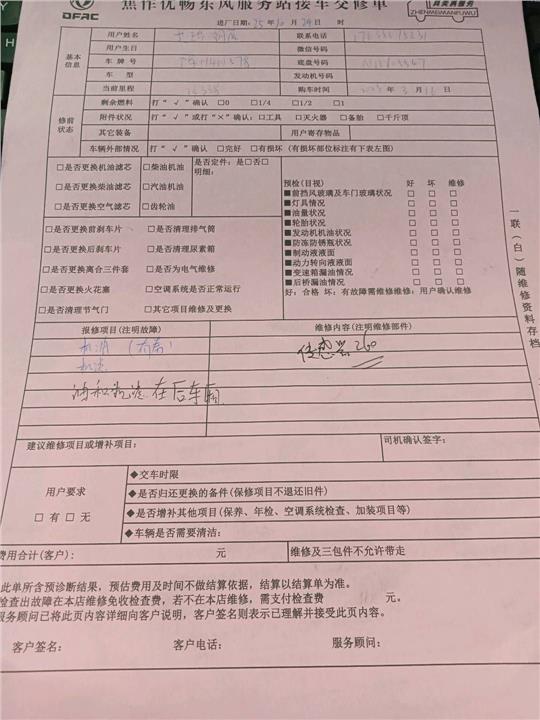 焦作优畅东风服务站接车交修单
DFAC
真美真服务
ZHENMEIZHENFUWU
进厂日期: 25年 月 24日 时
基本信息
用户姓名 联系电话
用户生日 微信号码
车牌号 底盘号码
车型 发动机号码
当前里程 购车时间 年3月16日
修前状态
剩余燃料 打“√”确认 □0 □1/4 □1/2 □1
附件状况 打“√”或打“×”确认:□工具 □灭火器 □备胎 □千斤顶
其它装备 用户寄存物品
车辆外部情况 打“√”确认 □完好 □有损坏 (有损坏部位标注有下表左图)
□是否更换机油滤芯 □柴油机油 是否定件: 是□否□
明细:
□是否更换柴油滤芯 □汽油机油
□是否更换空气滤芯 □齿轮油
□是否更换前刹车片 □是否清理排气筒
□是否更换后刹车片 □是否清理尿素箱
□是否更换离合三件套 □是否为电气维修
□是否更换火花塞 □空调系统是否正常运行
□是否清理节气门 □其它项目维修及更换
预检(目视) 好 坏 维修
■前挡风玻璃及车门玻璃状况 □ □ □
■灯具情况 □ □ □
■油量状况 □ □ □
■轮胎状况 □ □ □
■发动机机油状况 □ □ □
■防冻防锈瓶状况 □ □ □
■制动液液面 □ □ □
■动力转向液液面 □ □ □
■变速箱漏油情况 □ □ □
■后桥漏油情况 □ □ □
好:合格 坏:有故障需维修维修:用户确认维修
一联(白)随维修资料存档
报修项目(注明故障) 维修内容(注明维修部件)
传感器260
在后车厢
建议维修项目或增补项目: 司机确认签字:
用户要求
□有 □无
◆交车时限
◆是否归还更换的备件(保修项目不退还旧件)
◆是否增补其他项目(保养、年检、空调系统检查、加装项目等)
◆车辆是否需要清洁:
费用合计(客户): 元 维修及三包件不允许带走
此单所含预诊断结果,预估费用及时间不做结算依据,结算以结算单为准。
检查出故障在本店维修免收检查费,若不在本店维修,需支付检查费 元。
服务顾问已将此页内容详细向客户说明,客户签名则表示已理解并接受此页内容。
客户签名: 客户电话: 服务顾问: